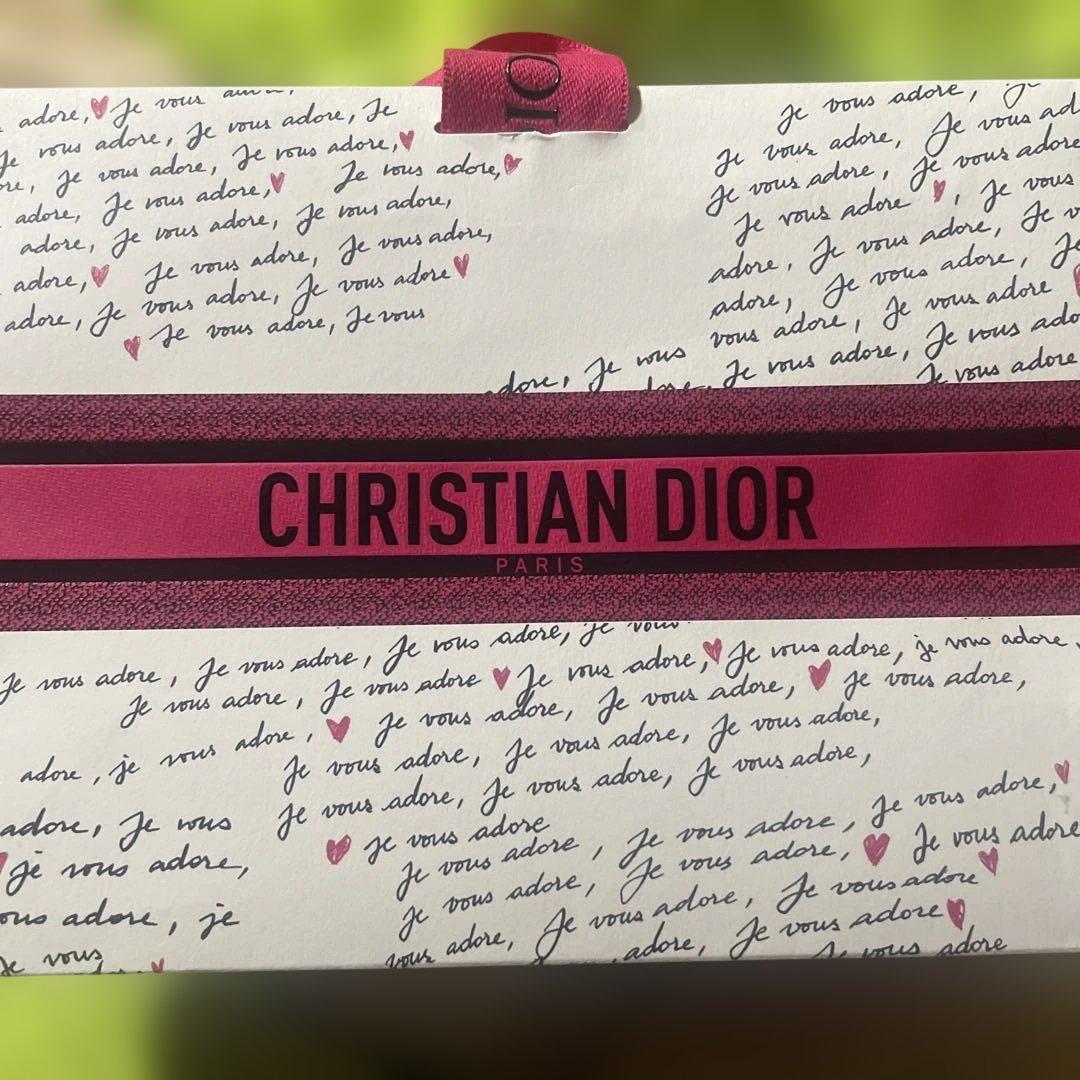 IO
adore, Je vous
Je vous adore, Je vous adore, Je
Je vous adore, Je vous adore,
adore, Je vous adore, Je vous adore,
adore, Je vous adore, Je vous adore,
adore, Je vous adore, Je vous adore,
adore, Je vous adore, Je vous adore
Je vous adore, Je vous
Je vous adore, Je
Je vous adore, Je vous
Je vous adore, Je vous adore
Je vous adore, Je vous
adore, Je vous adore, Je
adore, Je vous adore, Je
vous adore, Je vous adore
adore, Je vous
Je vous adore, Je vous
Je vous adore
CHRISTIAN DIOR
PARIS
Je vous adore, Je vous adore, Je vous adore, je vous
Je vous adore, Je vous adore Je vous adore, Je vous adore, je vous adore,
adore, je vous adore, Je vous adore, Je vous adore, Je vous adore,
Je vous adore, Je vous adore, Je vous adore,
adore, Je vous Je vous adore, Je vous adore, Je vous adore,
je vous adore, je vous adore
Je vous adore, Je vous adore, Je vous adore,
vous adore, je
Je vous adore, Je vous adore, Je vous adore
Je vous
vous adore, Je vous adore, Je vous adore
adore, Je vous adore
Je vous adore